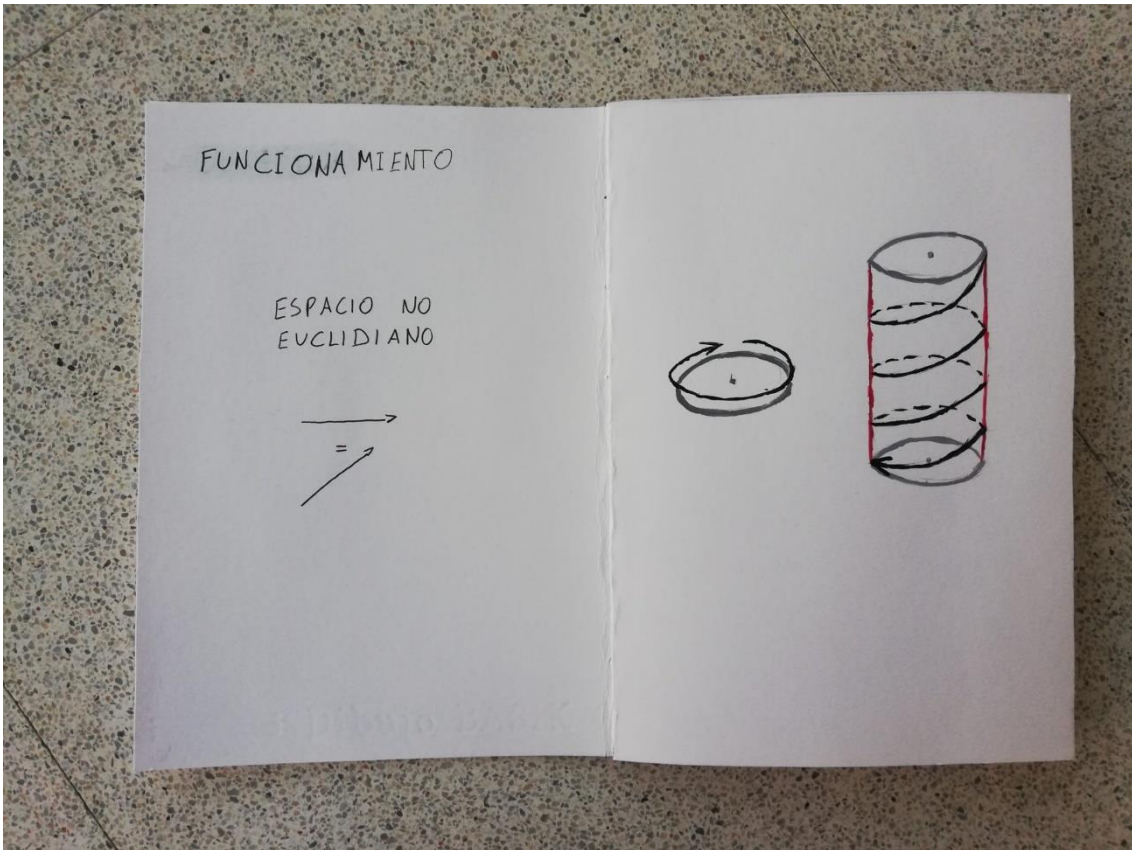 FUNCIONAMIENTO
ESPACIO NO
EUCLIDIANO
=